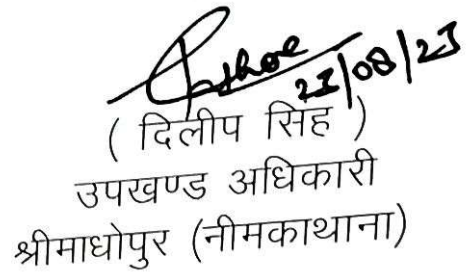 23/08/23
( दिलीप सिंह )
उपखण्ड अधिकारी
श्रीमाधोपुर (नीमकाथाना)